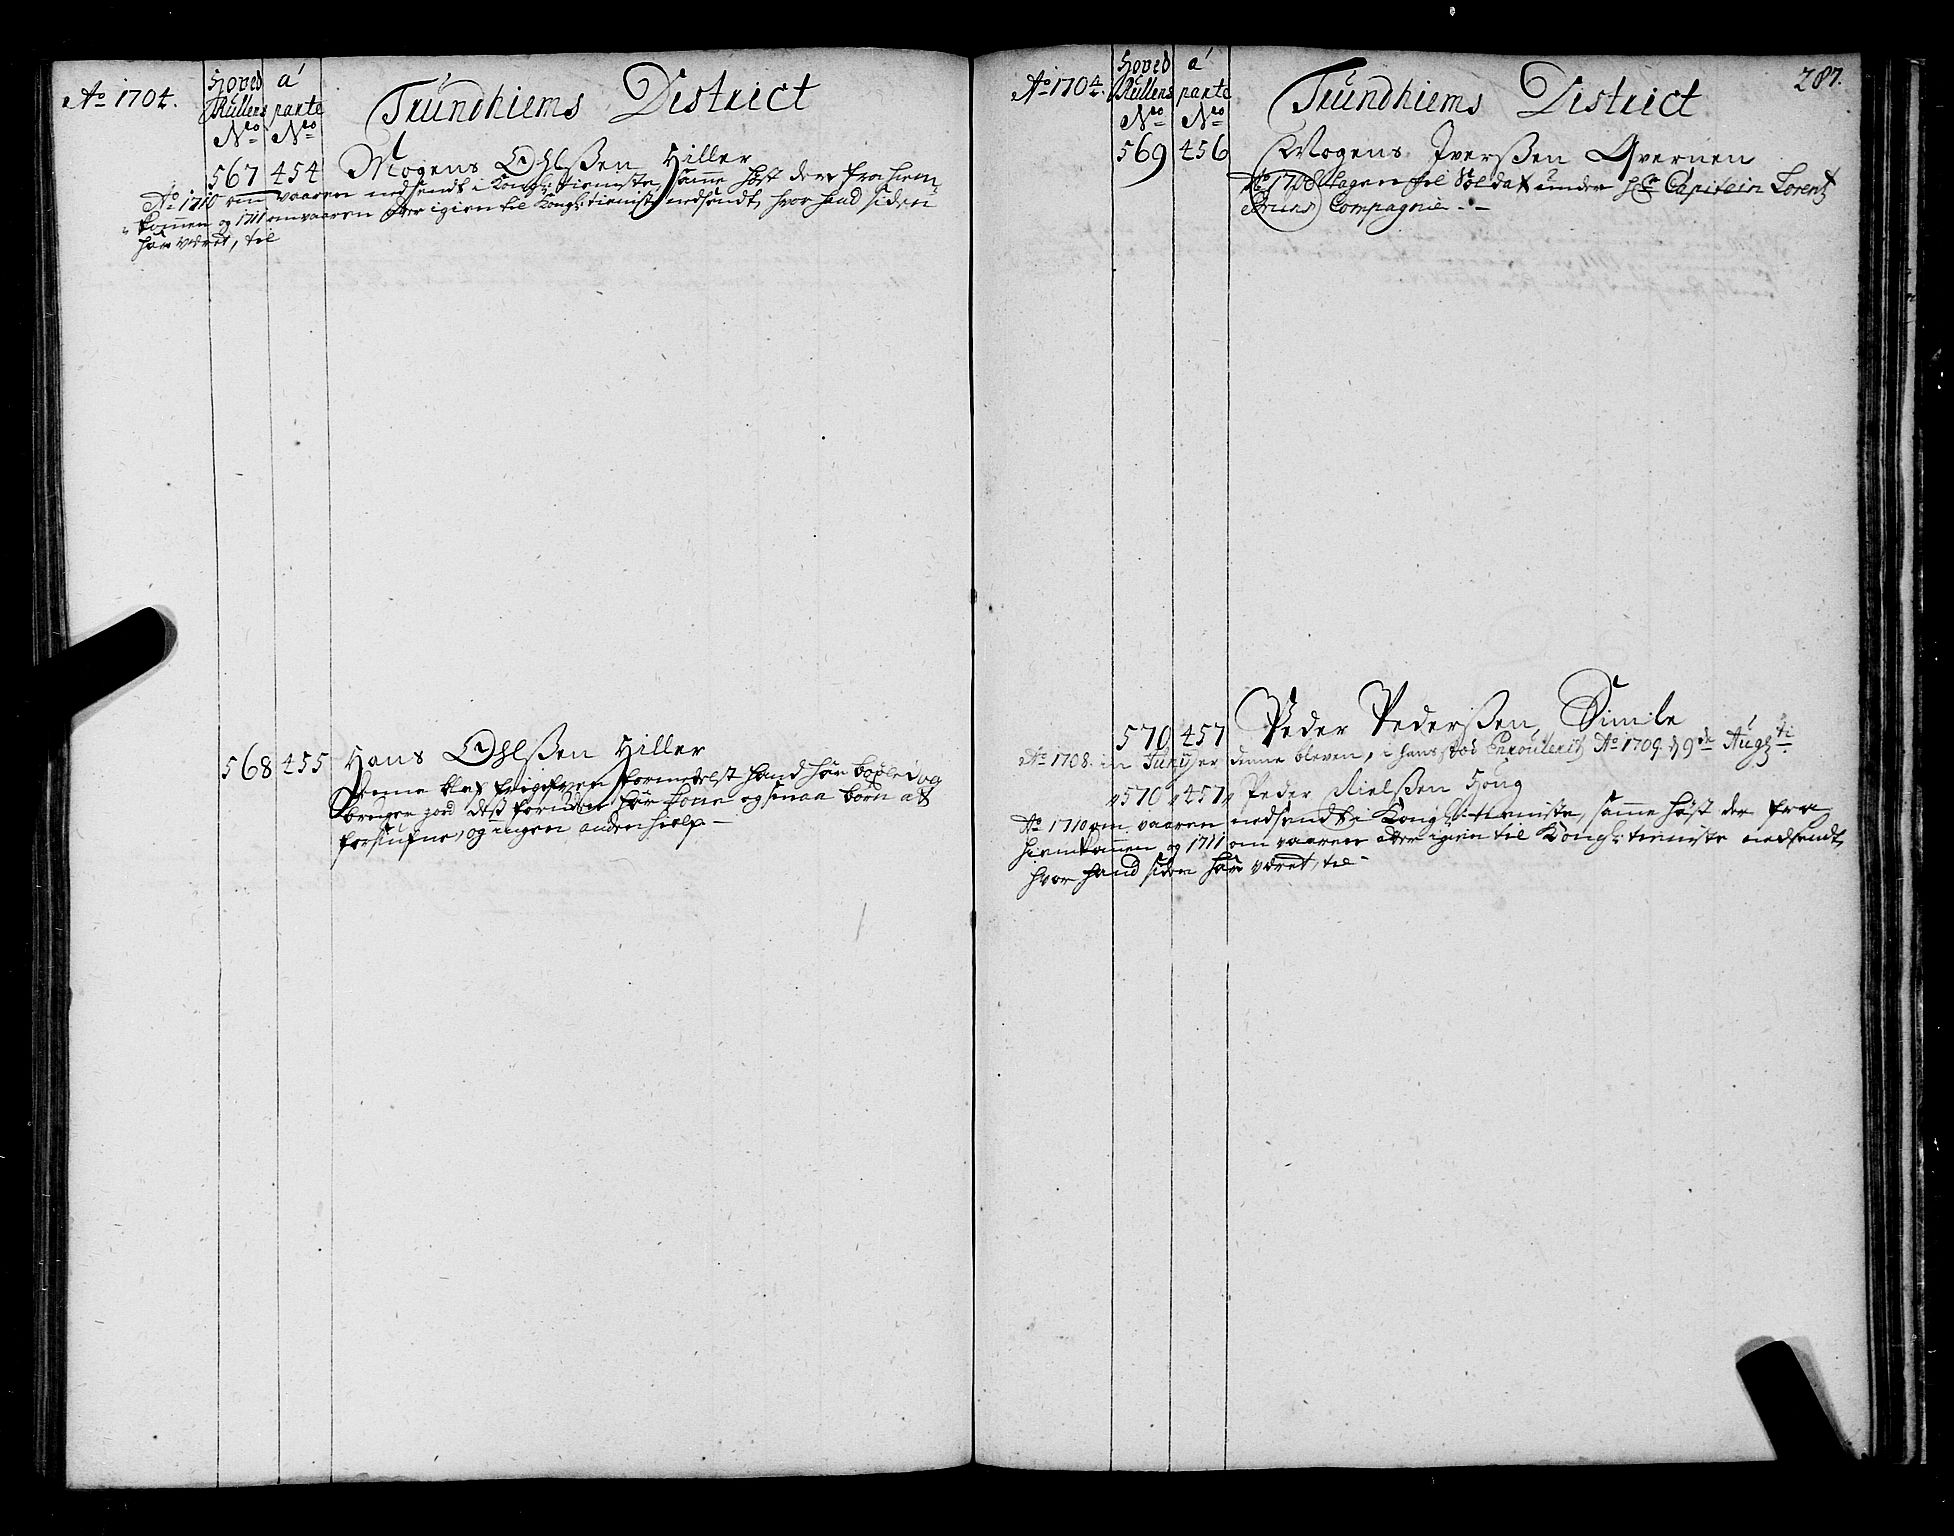 Ao 1704.
Hoved Rullens No
a' parte No
Trundhiems District
567 454 Mogens Ohlßen Hiller
Ao 1710 om vaaren nedsendt i Kongl: tieniste, samme høst der fra hiem-
kommen og 1711 om vaaren atter igien til Kongl: tieniste nedsendt, hvor hand siden
har været, til
568 455 Hans Ohlßen Hiller
Denne blef frigifven formedelst hand har böxled og
bruger jord dest foruden har kone og smaa børn at
forsiufne, og ingen anden hielp-
287.
Ao 1704.
Hoved Rullens No
a' parte No
Trundhiems District
569 456 Mogens Iverßen Qvernen
Ao 1708 tagen til Soldat under Hr Capitein Lorentz
Bruns Compagnie --
570 457 Peder Pederßen Simile
Ao 1708. in Junij er denne bleven, i hans stød Enroulerit Ao 1709. d 9de Augsti
570 457 Peder Nielßen Houg
Ao 1710 om vaaren nedsendt i Kongl: tieniste, samme høst der fra
hiemkommen og 1711 om vaaren atter igien til Kongl: tieniste nedsendt,
hvor hand siden har været, til-